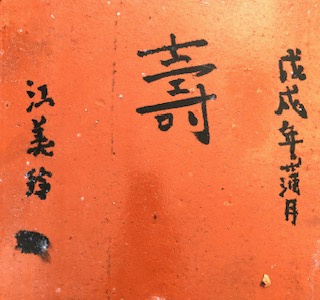 戊戌年蒲月
壽
江美玲